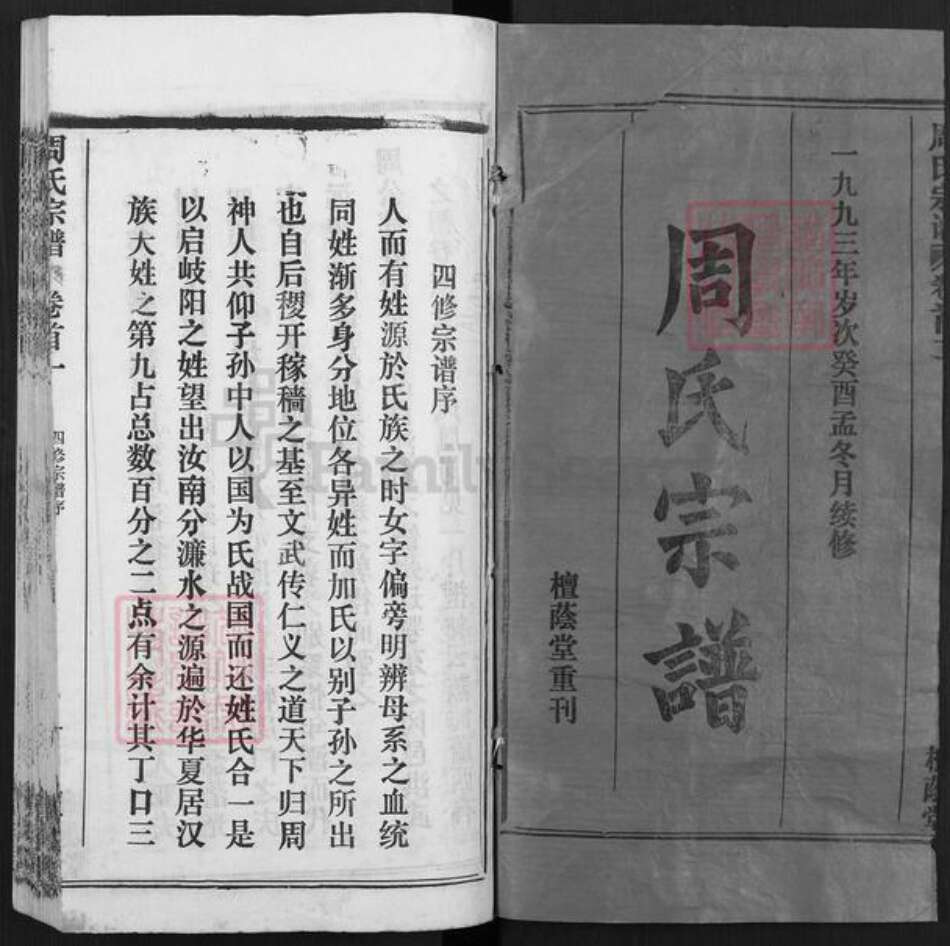 一九九三年岁次癸酉孟冬月续修
周氏宗譜
檀蔭堂重刊
四修宗谱序
人而有姓源於氏族之时女字偏旁明辨母系之血统
同姓渐多身分地位各异姓而加氏以别子孙之所出
也自后稷开稼穑之基至文武传仁义之道天下归周
神人共仰子孙中人以国为氏战国而还姓氏合一是
以启岐阳之姓望出汝南分濂水之源遍於华夏居汉
族大姓之第九占总数百分之二点有余计其丁口三
周氏宗譜 卷首一 四修宗谱序